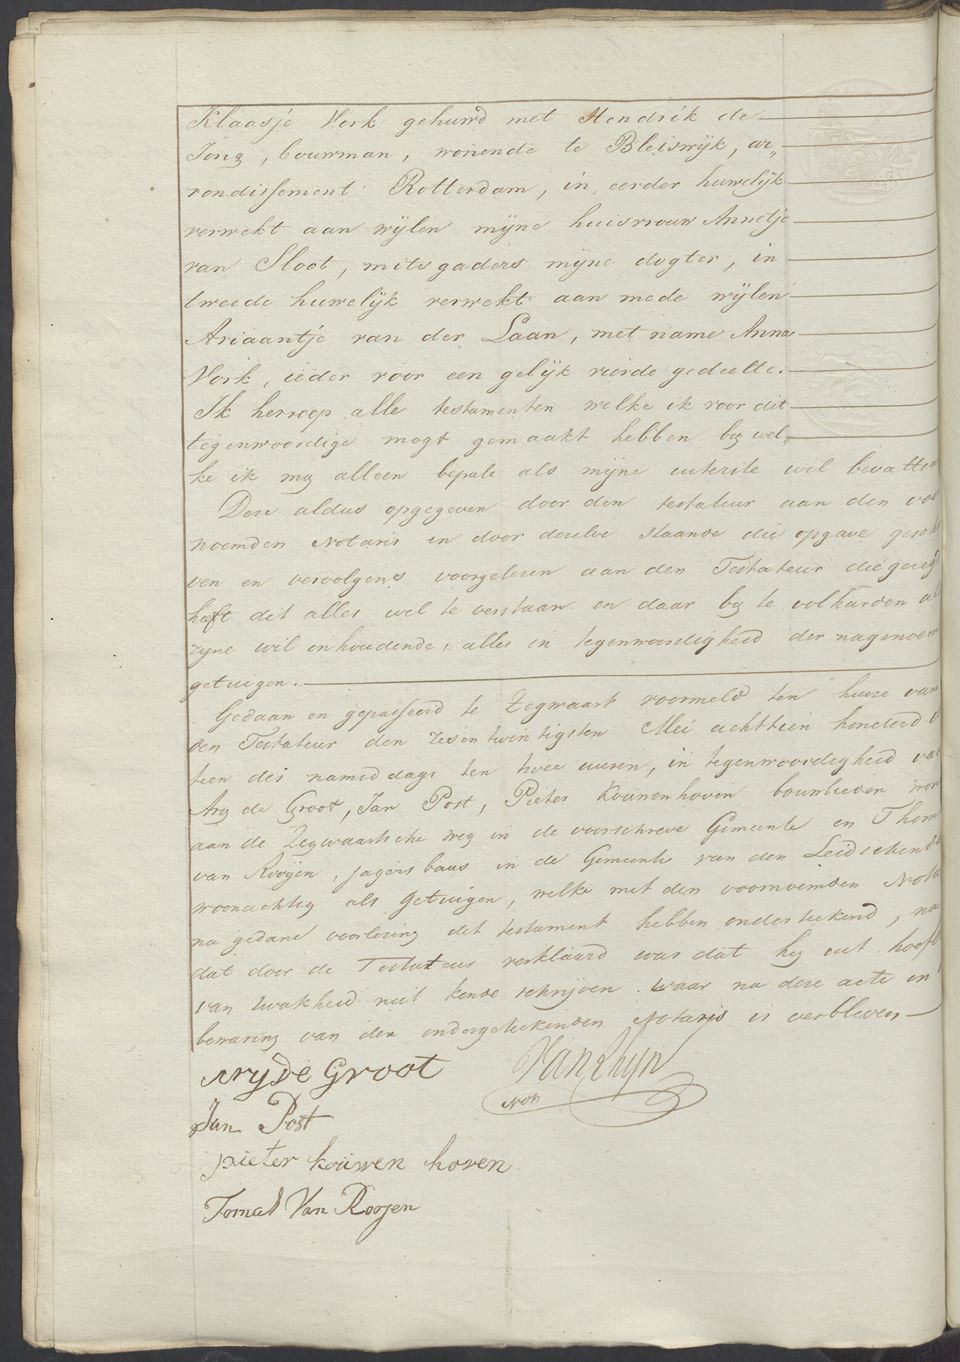 Klaasje Vork gehuwd met Hendrik de
Jong, bouwman, wonende te Bleiswijk, ar„
rondissement Rotterdam, in eerder huwelijk
verwekt aan wijlen mijne huisvrouw Annetje
van Sloot, mitsgaders mijne dogter, in
tweede huwelijk verwekt aan mede wijlen
Ariaantje van der Laan, met name Anna
Vork, ieder voor een gelijk vierde gedeelte.
Ik herroep alle testamenten welke ik voor dit
tegenwoordige mogt gemaakt hebben by wel„
ke ik my alleen bepale als mijne uiterste wil bevatten
Deze aldus opgegeven door den testateur aan den
noemden Notaris en door dezelve staande die opgave
ven en vervolgens voorgelezen aan den Testateur die
heeft dit alles wel te verstaan en daar by te volharden
zyne wil inhoudende, alles in tegenwoordigheid der
getuigen.
Gedaan en gepasseerd te Zegwaart voormeld ten huize van
den Testateur den zesentwintigsten Mei achttien honderd
tien des namiddags ten twee uuren, in tegenwoordigheid van
Ary de Groot, Jan Post, Pieter Kouwenhoven bouwlieden
aan de Zegwaartsche weg in de voorschreve Gemeente en
van Rooijen, jagers baas in de Gemeente van den
woonachtig als Getuigen, welke met den voornoemden
na gedane voorlezing dit testament hebben onderteekend,
dat door de Testateur verklaard was dat hy uit hoofde
van zwakheid niet konde schrijven. Waar na deze acte in
bewaring van den ondergeteekenden Notaris is verbleven
Ary de Groot VanRhyn
Not
Jan Post
pieter kouwen hoven
Tomas Van Roojen